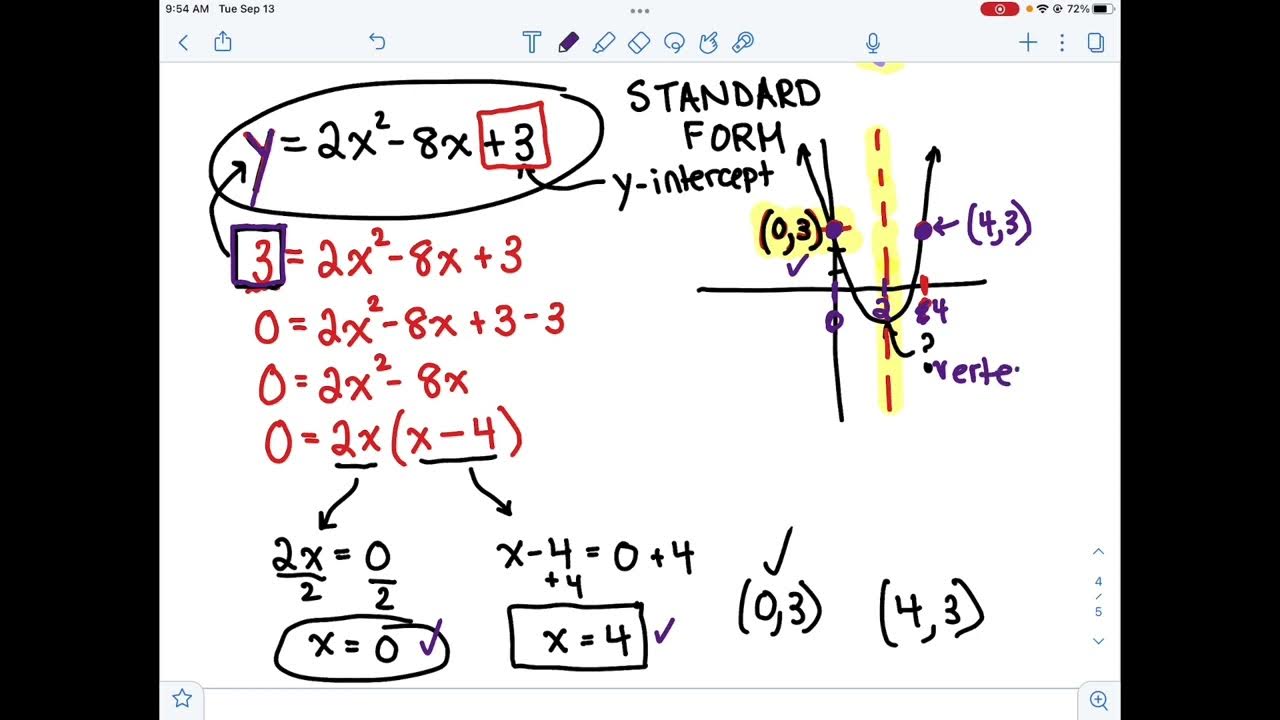 9:54 AM Tue Sep 13
72%
STANDARD
FORM
y = 2x² - 8x + 3
y-intercept
3 = 2x² - 8x + 3
0 = 2x² - 8x + 3 - 3
0 = 2x² - 8x
0 = 2x(x - 4)
2x = 0
2 2
x = 0 ✓
x - 4 = 0 + 4
+4
x = 4 ✓
✓
(0,3) (4,3)
(0,3)
✓
(4,3)
0 2 4
?
verte
4
/
5